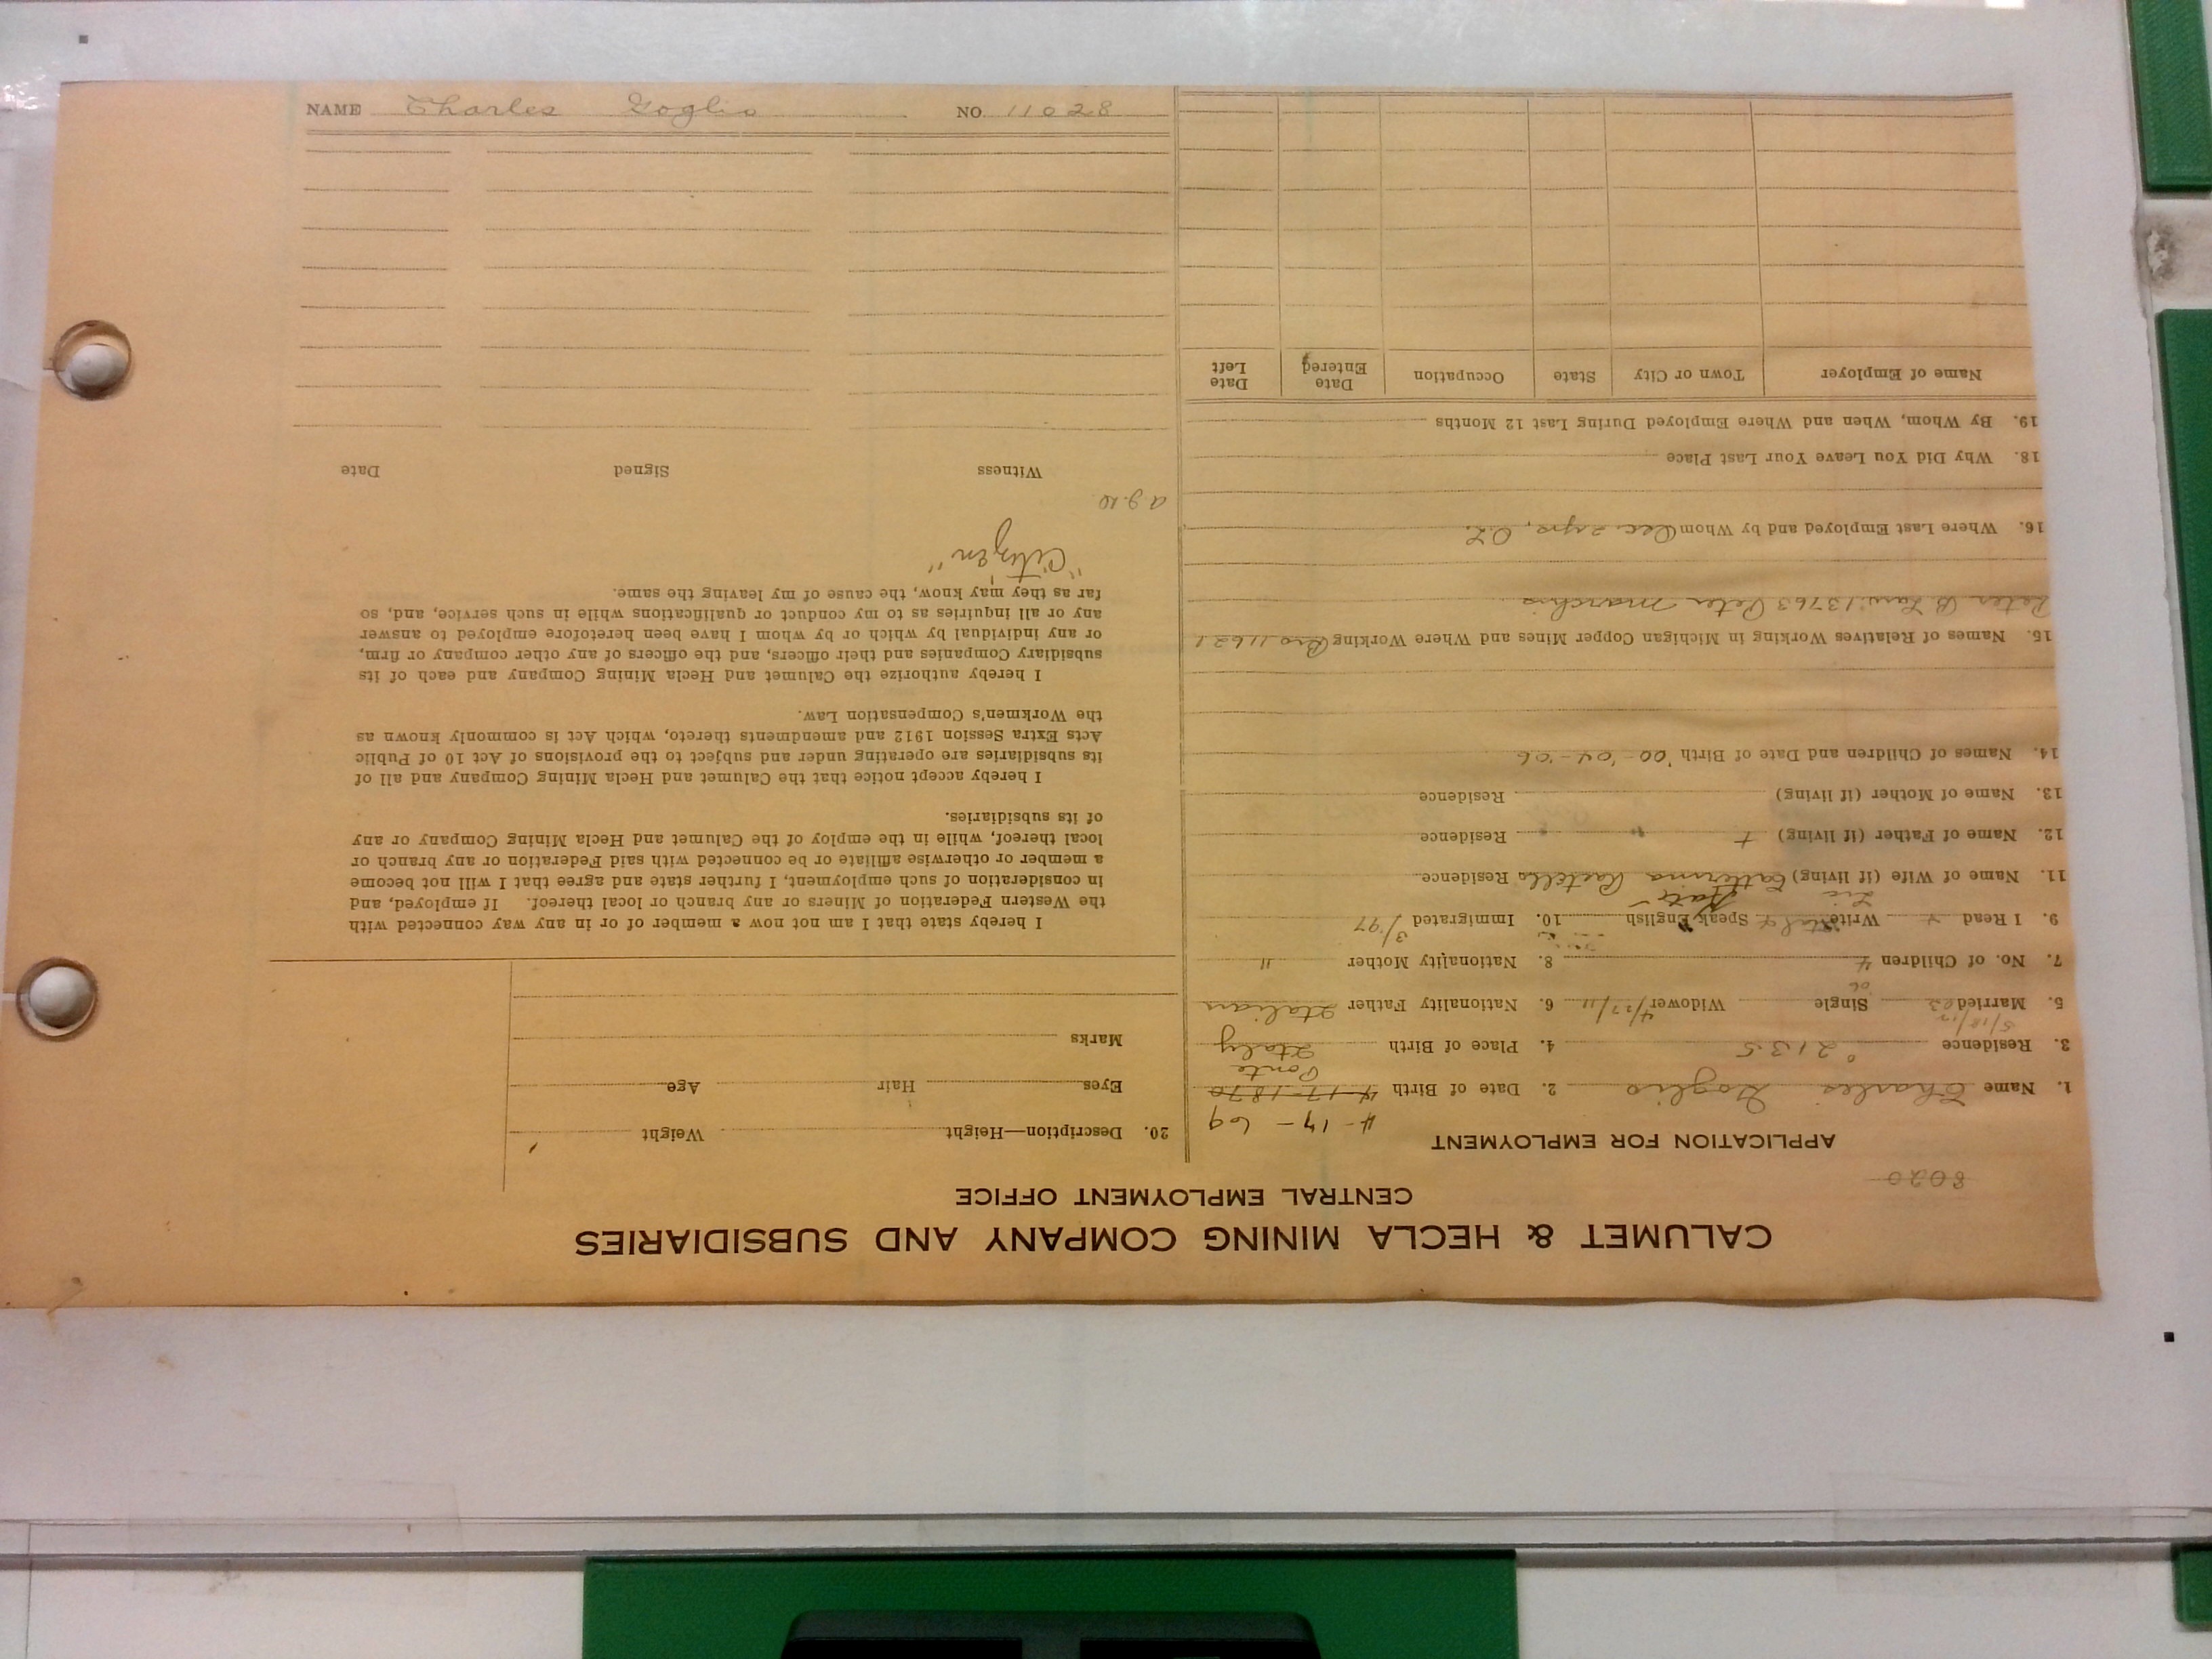 CALUMET & HECLA MINING COMPANY AND SUBSIDIARIES
CENTRAL EMPLOYMENT OFFICE
8020
APPLICATION FOR EMPLOYMENT
4-17-69
1. Name Charles Goglio 2. Date of Birth 4-17-1870
Ponte
3. Residence 2135 4. Place of Birth Italy
5/18/17
5. Married Single Widower 4/27/11 6. Nationality Father Italian
06
7. No. of Children 4 8. Nationality Mother "
9. I Read Write Speak English 10. Immigrated 3/97
11. Name of Wife (if living) Catterina Residence
12. Name of Father (if living) Residence
13. Name of Mother (if living) Residence
14. Names of Children and Date of Birth '00-'04-'06
15. Names of Relatives Working in Michigan Copper Mines and Where Working Bro 11621
Peter B Law 13763 Peter Marchio
16. Where Last Employed and by Whom
18. Why Did You Leave Your Last Place
19. By Whom, When and Where Employed During Last 12 Months
Name of Employer Town or City State Occupation Date Entered Date Left
20. Description—Height Weight
Eyes Hair Age
Marks
I hereby state that I am not now a member of or in any way connected with
the Western Federation of Miners or any branch or local thereof. If employed, and
in consideration of such employment, I further state and agree that I will not become
a member or otherwise affiliate or be connected with said Federation or any branch or
local thereof, while in the employ of the Calumet and Hecla Mining Company or any
of its subsidiaries.
I hereby accept notice that the Calumet and Hecla Mining Company and all of
its subsidiaries are operating under and subject to the provisions of Act 10 of Public
Acts Extra Session 1912 and amendments thereto, which Act is commonly known as
the Workmen's Compensation Law.
I hereby authorize the Calumet and Hecla Mining Company and each of its
subsidiary Companies and their officers, and the officers of any other company or firm,
or any individual by which or by whom I have been heretofore employed to answer
any or all inquiries as to my conduct or qualifications while in such service, and, so
far as they may know, the cause of my leaving the same.
"Citizen"
Witness Signed Date
NAME Charles Goglio NO. 11028